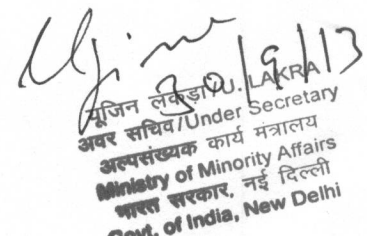 Ujin
30/9/13
यूजिन लकड़ा/U. LAKRA
अवर सचिव/Under Secretary
अल्पसंख्यक कार्य मंत्रालय
Ministry of Minority Affairs
भारत सरकार, नई दिल्ली
Govt. of India, New Delhi